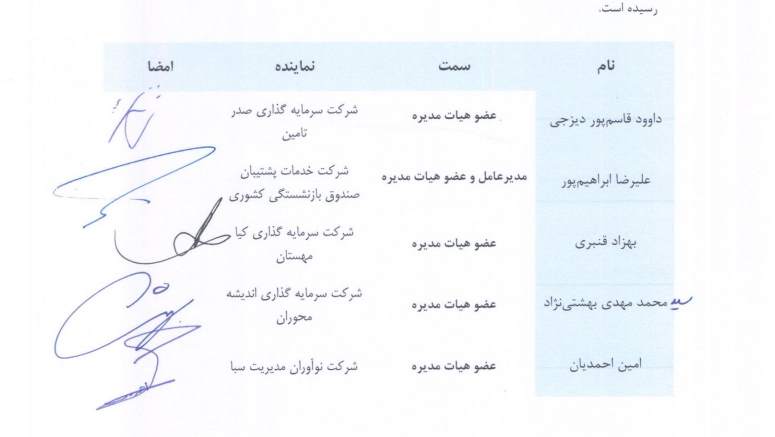 رسیده است.
نام سمت نماینده امضا
داوود قاسم‌پور دیزجی عضو هیات مدیره شرکت سرمایه گذاری صدر
تامین
علیرضا ابراهیم‌پور مدیرعامل و عضو هیات مدیره شرکت خدمات پشتیبان
صندوق بازنشستگی کشوری
بهزاد قنبری عضو هیات مدیره شرکت سرمایه گذاری کیا
مهستان
سید محمد مهدی بهشتی‌نژاد عضو هیات مدیره شرکت سرمایه گذاری اندیشه
محوران
امین احمدیان عضو هیات مدیره شرکت نوآوران مدیریت سبا